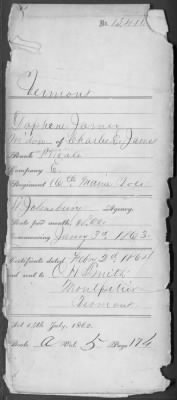 No. 12,411
Vermont
Daphene Jarner
Widow of Charles E. Jarner
Rank Private
Company E
Regiment 16th Maine Vols
St Johnsbury Agency.
Rate per month, $8.00
Commencing Jany 3d 1863.
Certificate dated Feby 2d 1864
and sent to C H Smith
Montpelier
Vermont
Act 14th July, 1862.
Book A Vol. 5 Page 174